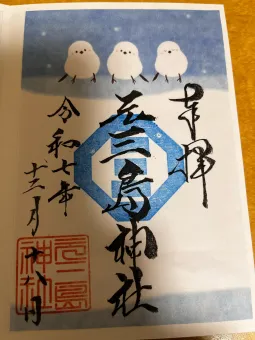 奉拝
元三島神社
令和七年
十二月十八日
元三島
神社